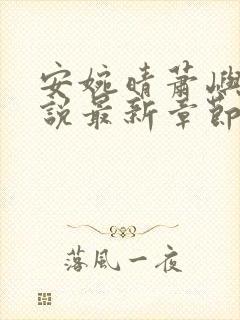 安婉晴蕭嶼
說最新章節
落風一夜